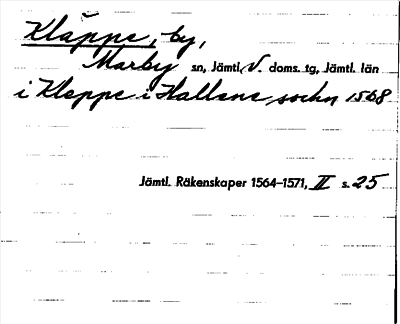 Kläppe, by,
Marby sn, Jämtl. V. doms. tg, Jämtl. län
i Kleppe i Hallens sochn 1568
Jämtl. Räkenskaper 1564–1571, II s. 25